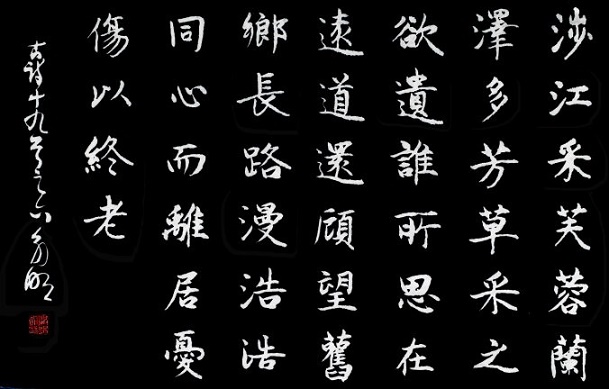 涉江采芙蓉蘭
澤多芳草采之
欲遺誰所思在
遠道還顧望舊
鄉長路漫浩浩
同心而離居憂
傷以終老
古詩十九首之六